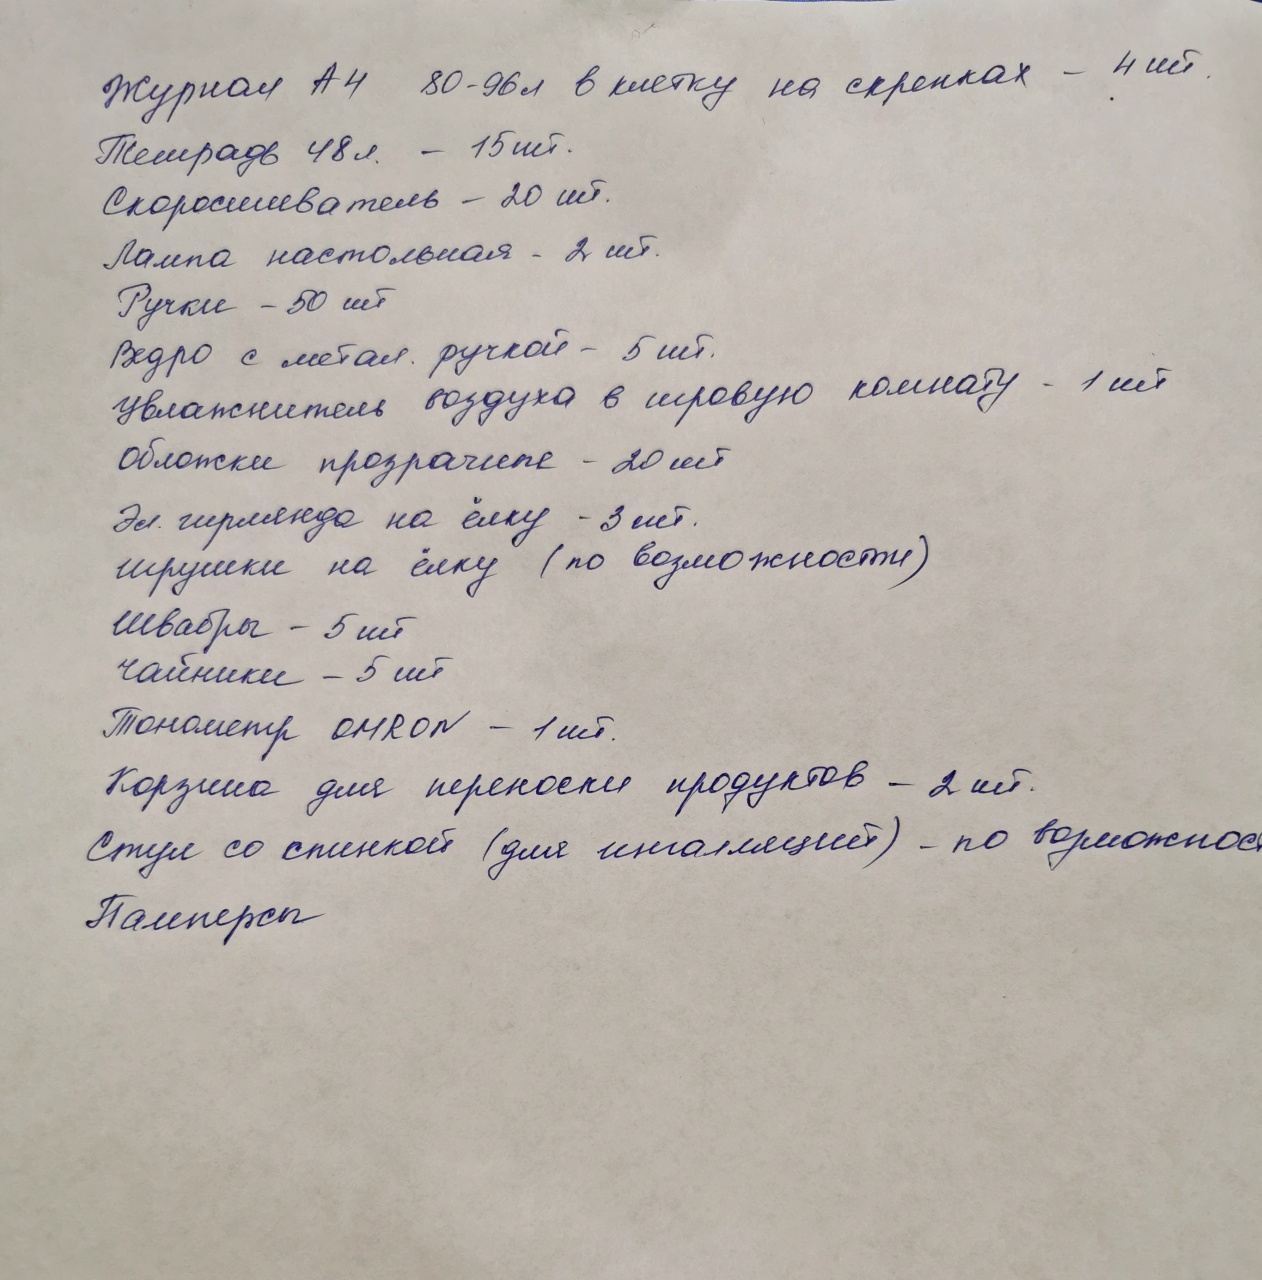 Журнал А4 80-96л в клетку на скрепках - 4 шт.
Тетрадь 48л. - 15 шт.
Скоросшиватель - 20 шт.
Лампа настольная - 2 шт.
Ручки - 50 шт
Ведро с метал. ручкой - 5 шт.
Увлажнитель воздуха в игровую комнату - 1 шт
Обложки прозрачные - 20 шт
Эл. гирлянда на ёлку - 3 шт.
игрушки на ёлку (по возможности)
Швабры - 5 шт
Чайники - 5 шт
Тонометр OMRON - 1 шт.
Корзина для переноски продуктов - 2 шт.
Стул со спинкой (для ингаляций) - по возможност
Памперсы